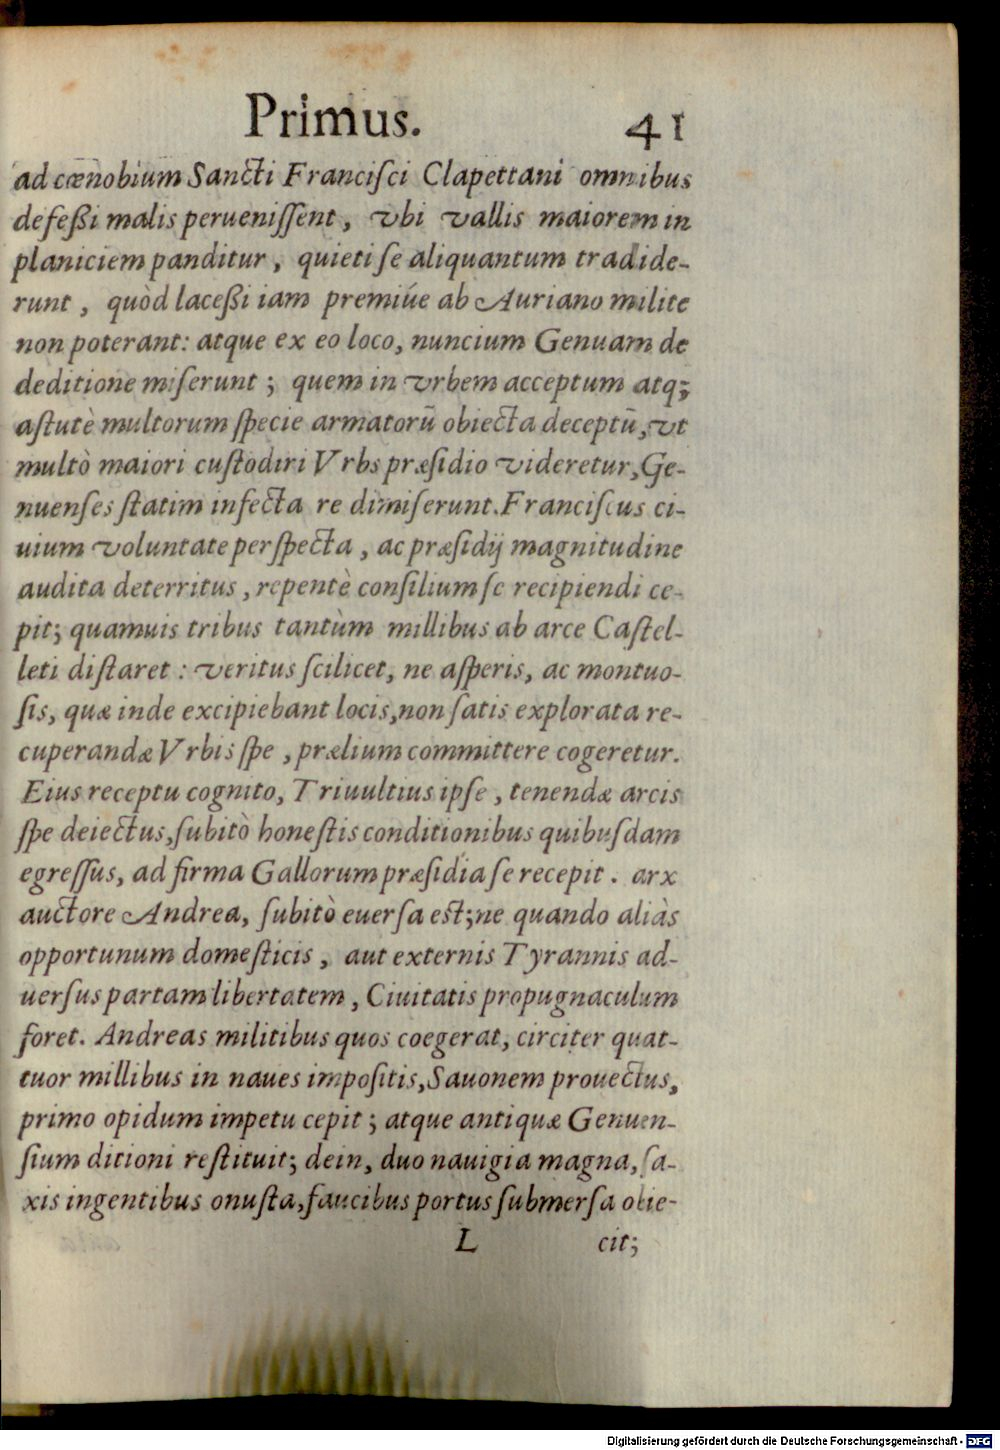 Primus. 41
ad cœnobium Sancti Franciſci Clapettani omnibus
defeßi malis perueniſſent, vbi vallis maiorem in
planiciem panditur, quieti ſe aliquantum tradide-
runt, quòd laceßi iam premiúe ab Auriano milite
non poterant: atque ex eo loco, nuncium Genuam de
deditione miſerunt; quem in vrbem acceptum atq;
aſtutè multorum ſpecie armatorū obiecta deceptū, vt
multò maiori cuſtodiri Vrbs præſidio videretur, Ge-
nuenſes ſtatim infecta re dimiſerunt. Franciſcus ci-
uium voluntate perſpecta, ac præſidij magnitudine
audita deterritus, repentè conſilium ſe recipiendi ce-
pit; quamuis tribus tantùm millibus ab arce Caſtel-
leti diſtaret: veritus ſcilicet, ne aſperis, ac montuo-
ſis, quæ inde excipiebant locis, non ſatis explorata re-
cuperandæ Vrbis ſpe, prælium committere cogeretur.
Eius receptu cognito, Triuultius ipſe, tenendæ arcis
ſpe deiectus, ſubitò honeſtis conditionibus quibuſdam
egreſſus, ad firma Gallorum præſidia ſe recepit. arx
auctore Andrea, ſubitò euerſa eſt; ne quando aliàs
opportunum domeſticis, aut externis Tyrannis ad-
uerſus partam libertatem, Ciuitatis propugnaculum
foret. Andreas militibus quos coegerat, circiter quat-
tuor millibus in naues impoſitis, Sauonem prouectus,
primo opidum impetu cepit; atque antiquæ Genuen-
ſium ditioni reſtituit; dein, duo nauigia magna, ſa-
xis ingentibus onuſta, faucibus portus ſubmerſa obie-
L cit;
Digitalisierung gefördert durch die Deutsche Forschungsgemeinschaft - DFG